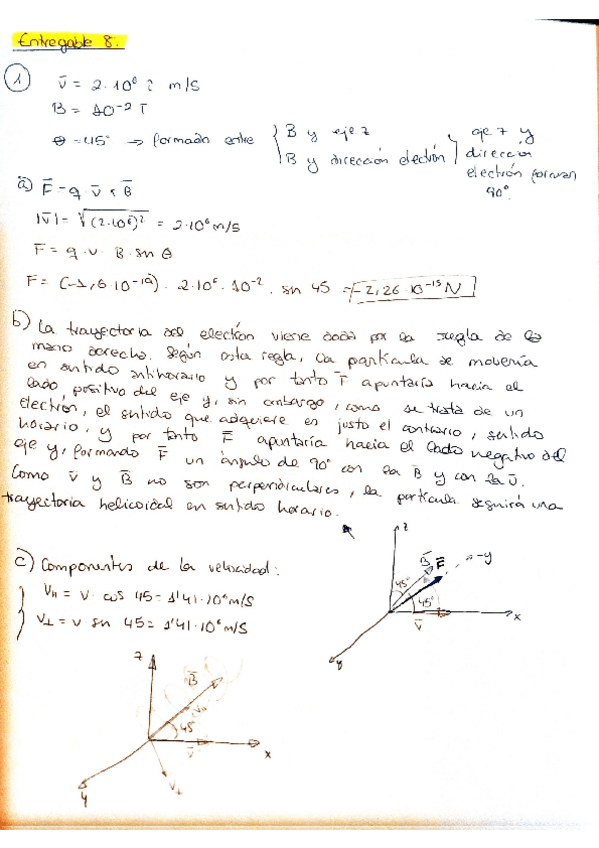 Entregable 8.
① v̄ = 2·10⁶ î m/s
B = 10⁻² T
θ = 45° → formado entre { B y eje z
B y dirección electrón } eje z y dirección electrón forman 90°
a) F̄ = q · v̄ x B̄
|v̄| = √(2·10⁶)² = 2·10⁶ m/s
F = q · v · B · sn θ
F = (-1,6·10⁻¹⁹) · 2·10⁶ · 10⁻² · sn 45 = -2,26·10⁻¹⁵ N
b) La trayectoria del electrón viene dada por la regla de la
mano derecha. Según esta regla, la partícula se movería
en sentido antihorario y por tanto F̄ apuntaría hacia el
lado positivo del eje y, sin embargo, como se trata de un
electrón, el sentido que adquiere es justo el contrario, sentido
horario, y por tanto F̄ apuntaría hacia el lado negativo del
eje y, formando F̄ un ángulo de 90° con la B̄ y con la v̄.
Como v̄ y B̄ no son perpendiculares, la partícula seguirá una
trayectoria helicoidal en sentido horario.
c) Componentes de la velocidad:
V॥ = v · cos 45 = 1'41·10⁶ m/s
V⊥ = v sn 45 = 1'41·10⁶ m/s
z
B̄
F̄
-y
45°
45°
v̄
x
y
z
B̄
V॥
45
v̄
x
V⊥
y